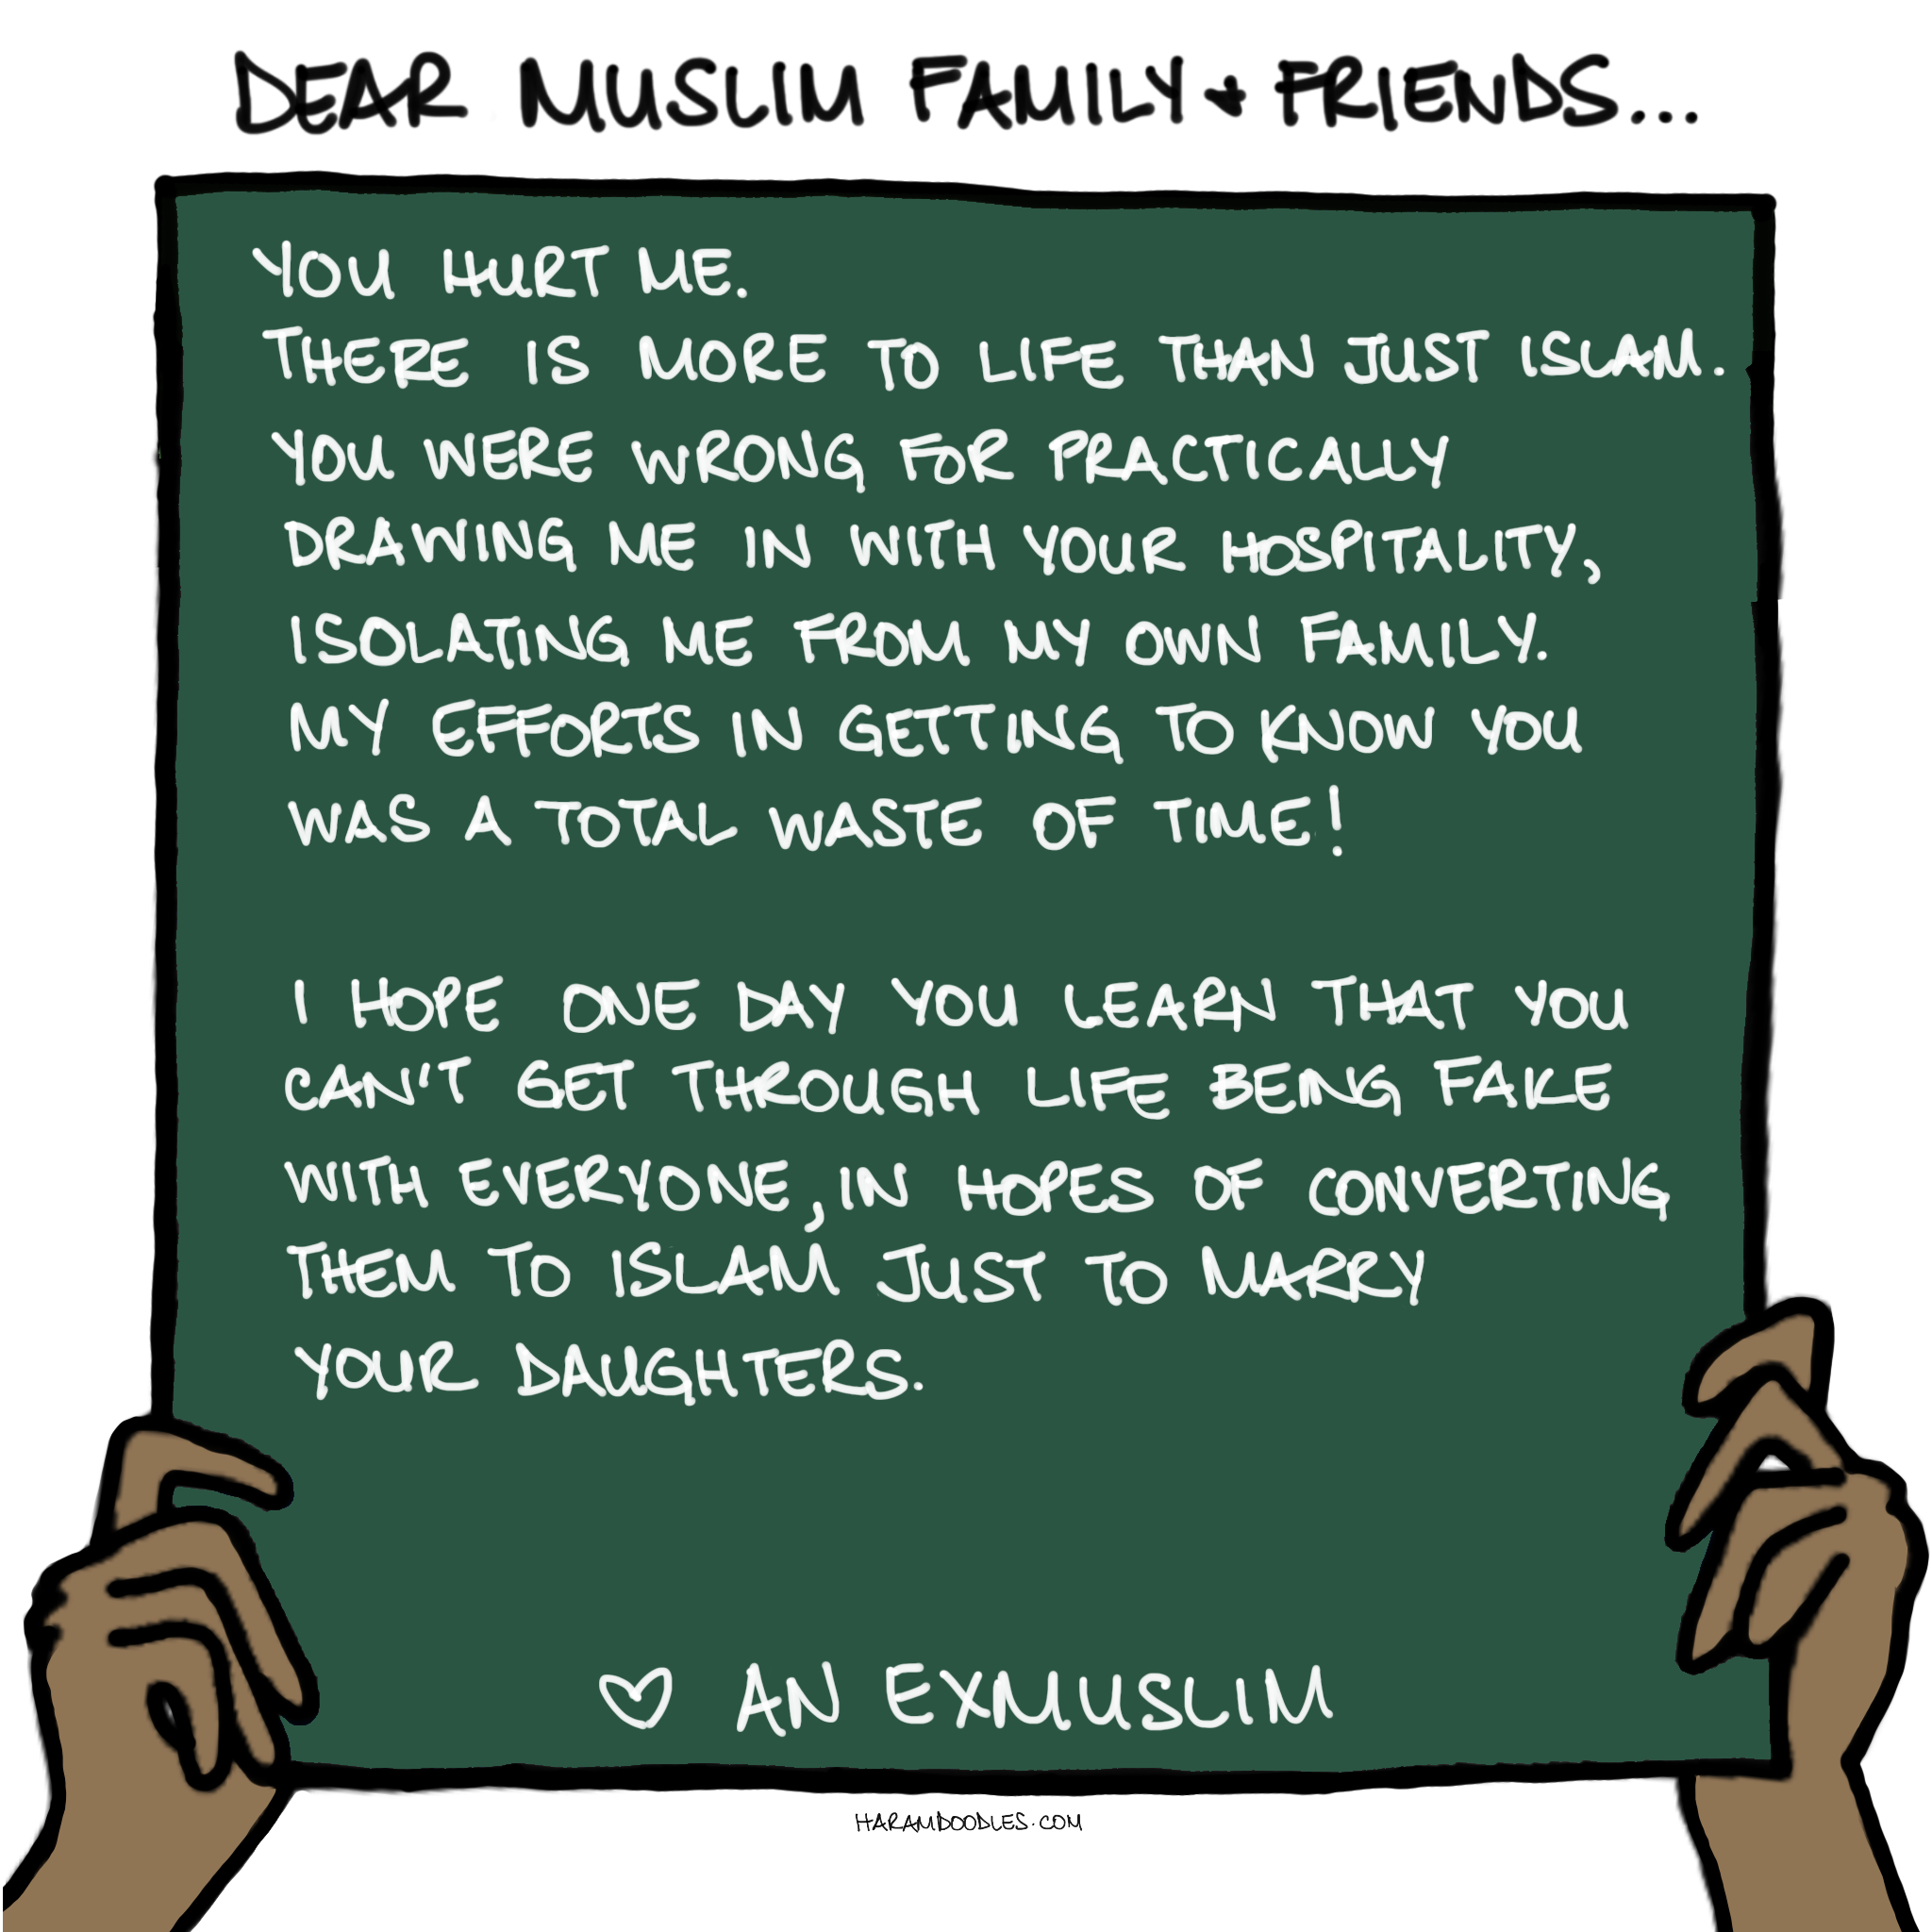 DEAR MUSLIM FAMILY + FRIENDS...
YOU HURT ME.
THERE IS MORE TO LIFE THAN JUST ISLAM.
YOU WERE WRONG FOR PRACTICALLY
DRAWING ME IN WITH YOUR HOSPITALITY,
ISOLATING ME FROM MY OWN FAMILY.
MY EFFORTS IN GETTING TO KNOW YOU
WAS A TOTAL WASTE OF TIME!
I HOPE ONE DAY YOU LEARN THAT YOU
CAN'T GET THROUGH LIFE BEING FAKE
WITH EVERYONE, IN HOPES OF CONVERTING
THEM TO ISLAM JUST TO MARRY
YOUR DAUGHTERS.
♡ AN EXMUSLIM
HARAMDOODLES.COM